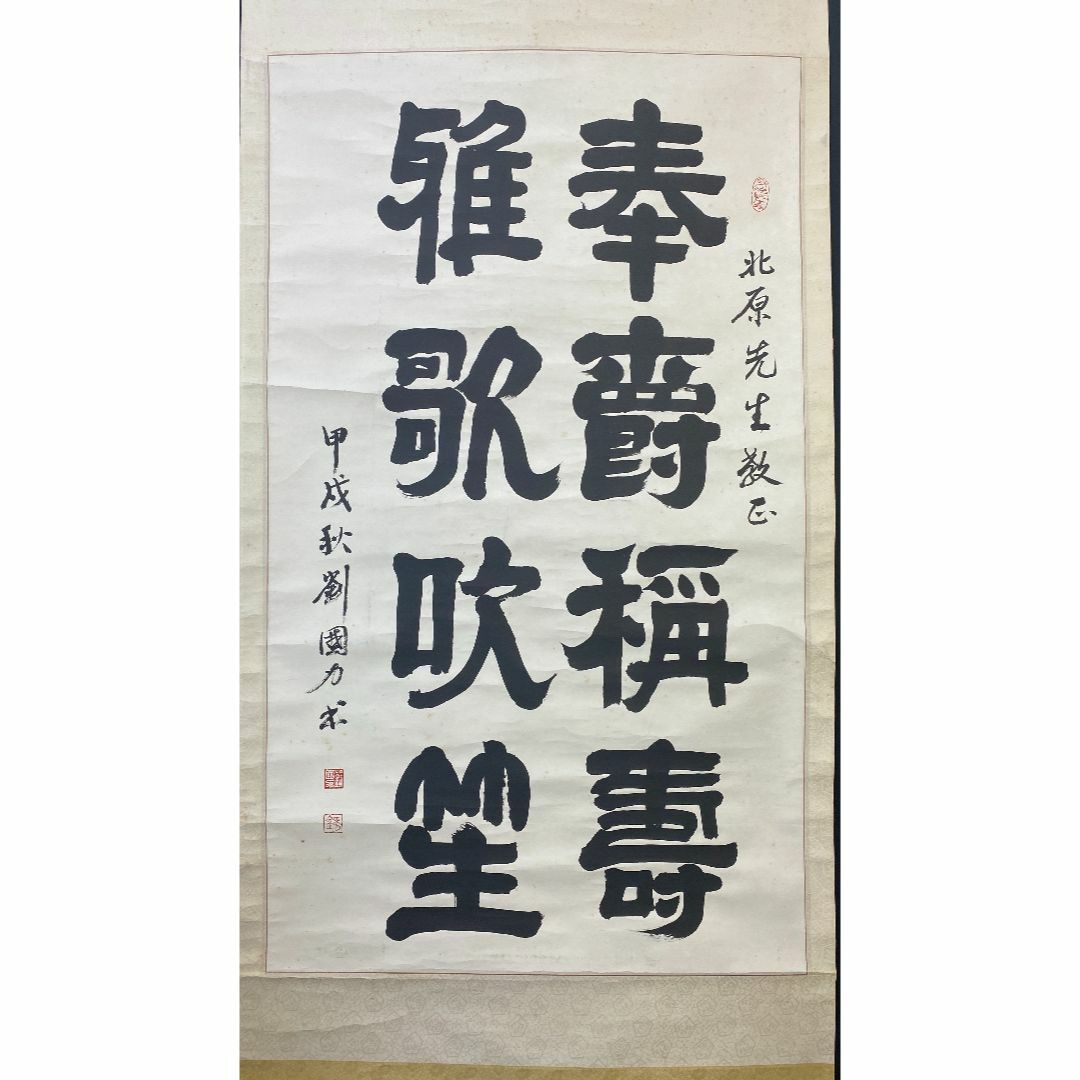 北原先生教正
奉爵稱壽
雅歌吹笙
甲戌秋劉國力书